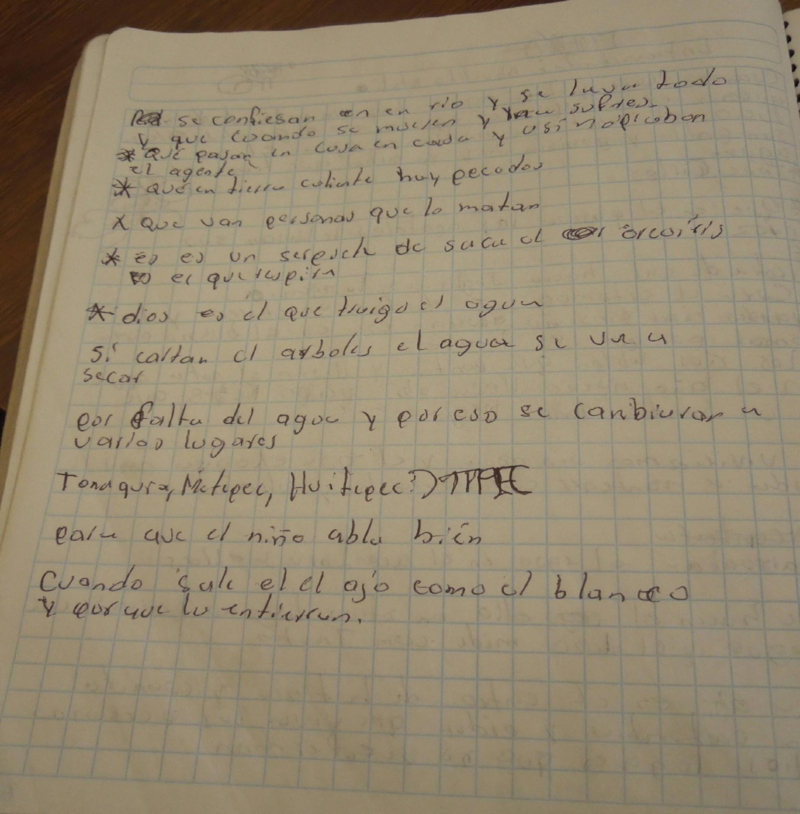 se confiesan en en rio y se lava todo
y que cuando se mueren y sufres
* que pasan en casa en casa y asi nopicaban
el agente
* que en tierra caliente hay pecados
x que van personas que lo matan
* es es un serpiente de saca el arcoiris
es el que respira
* dios es el que traiga el agua
si cortan el arboles el agua se va a
secar
por falta del agua y por eso se canbiaron a
varios lugares
Tonaguia, Metepec, Huitepec?)
para que el niño abla bien
Cuando sale el el ajo como el blanco
y porque lo entierran.